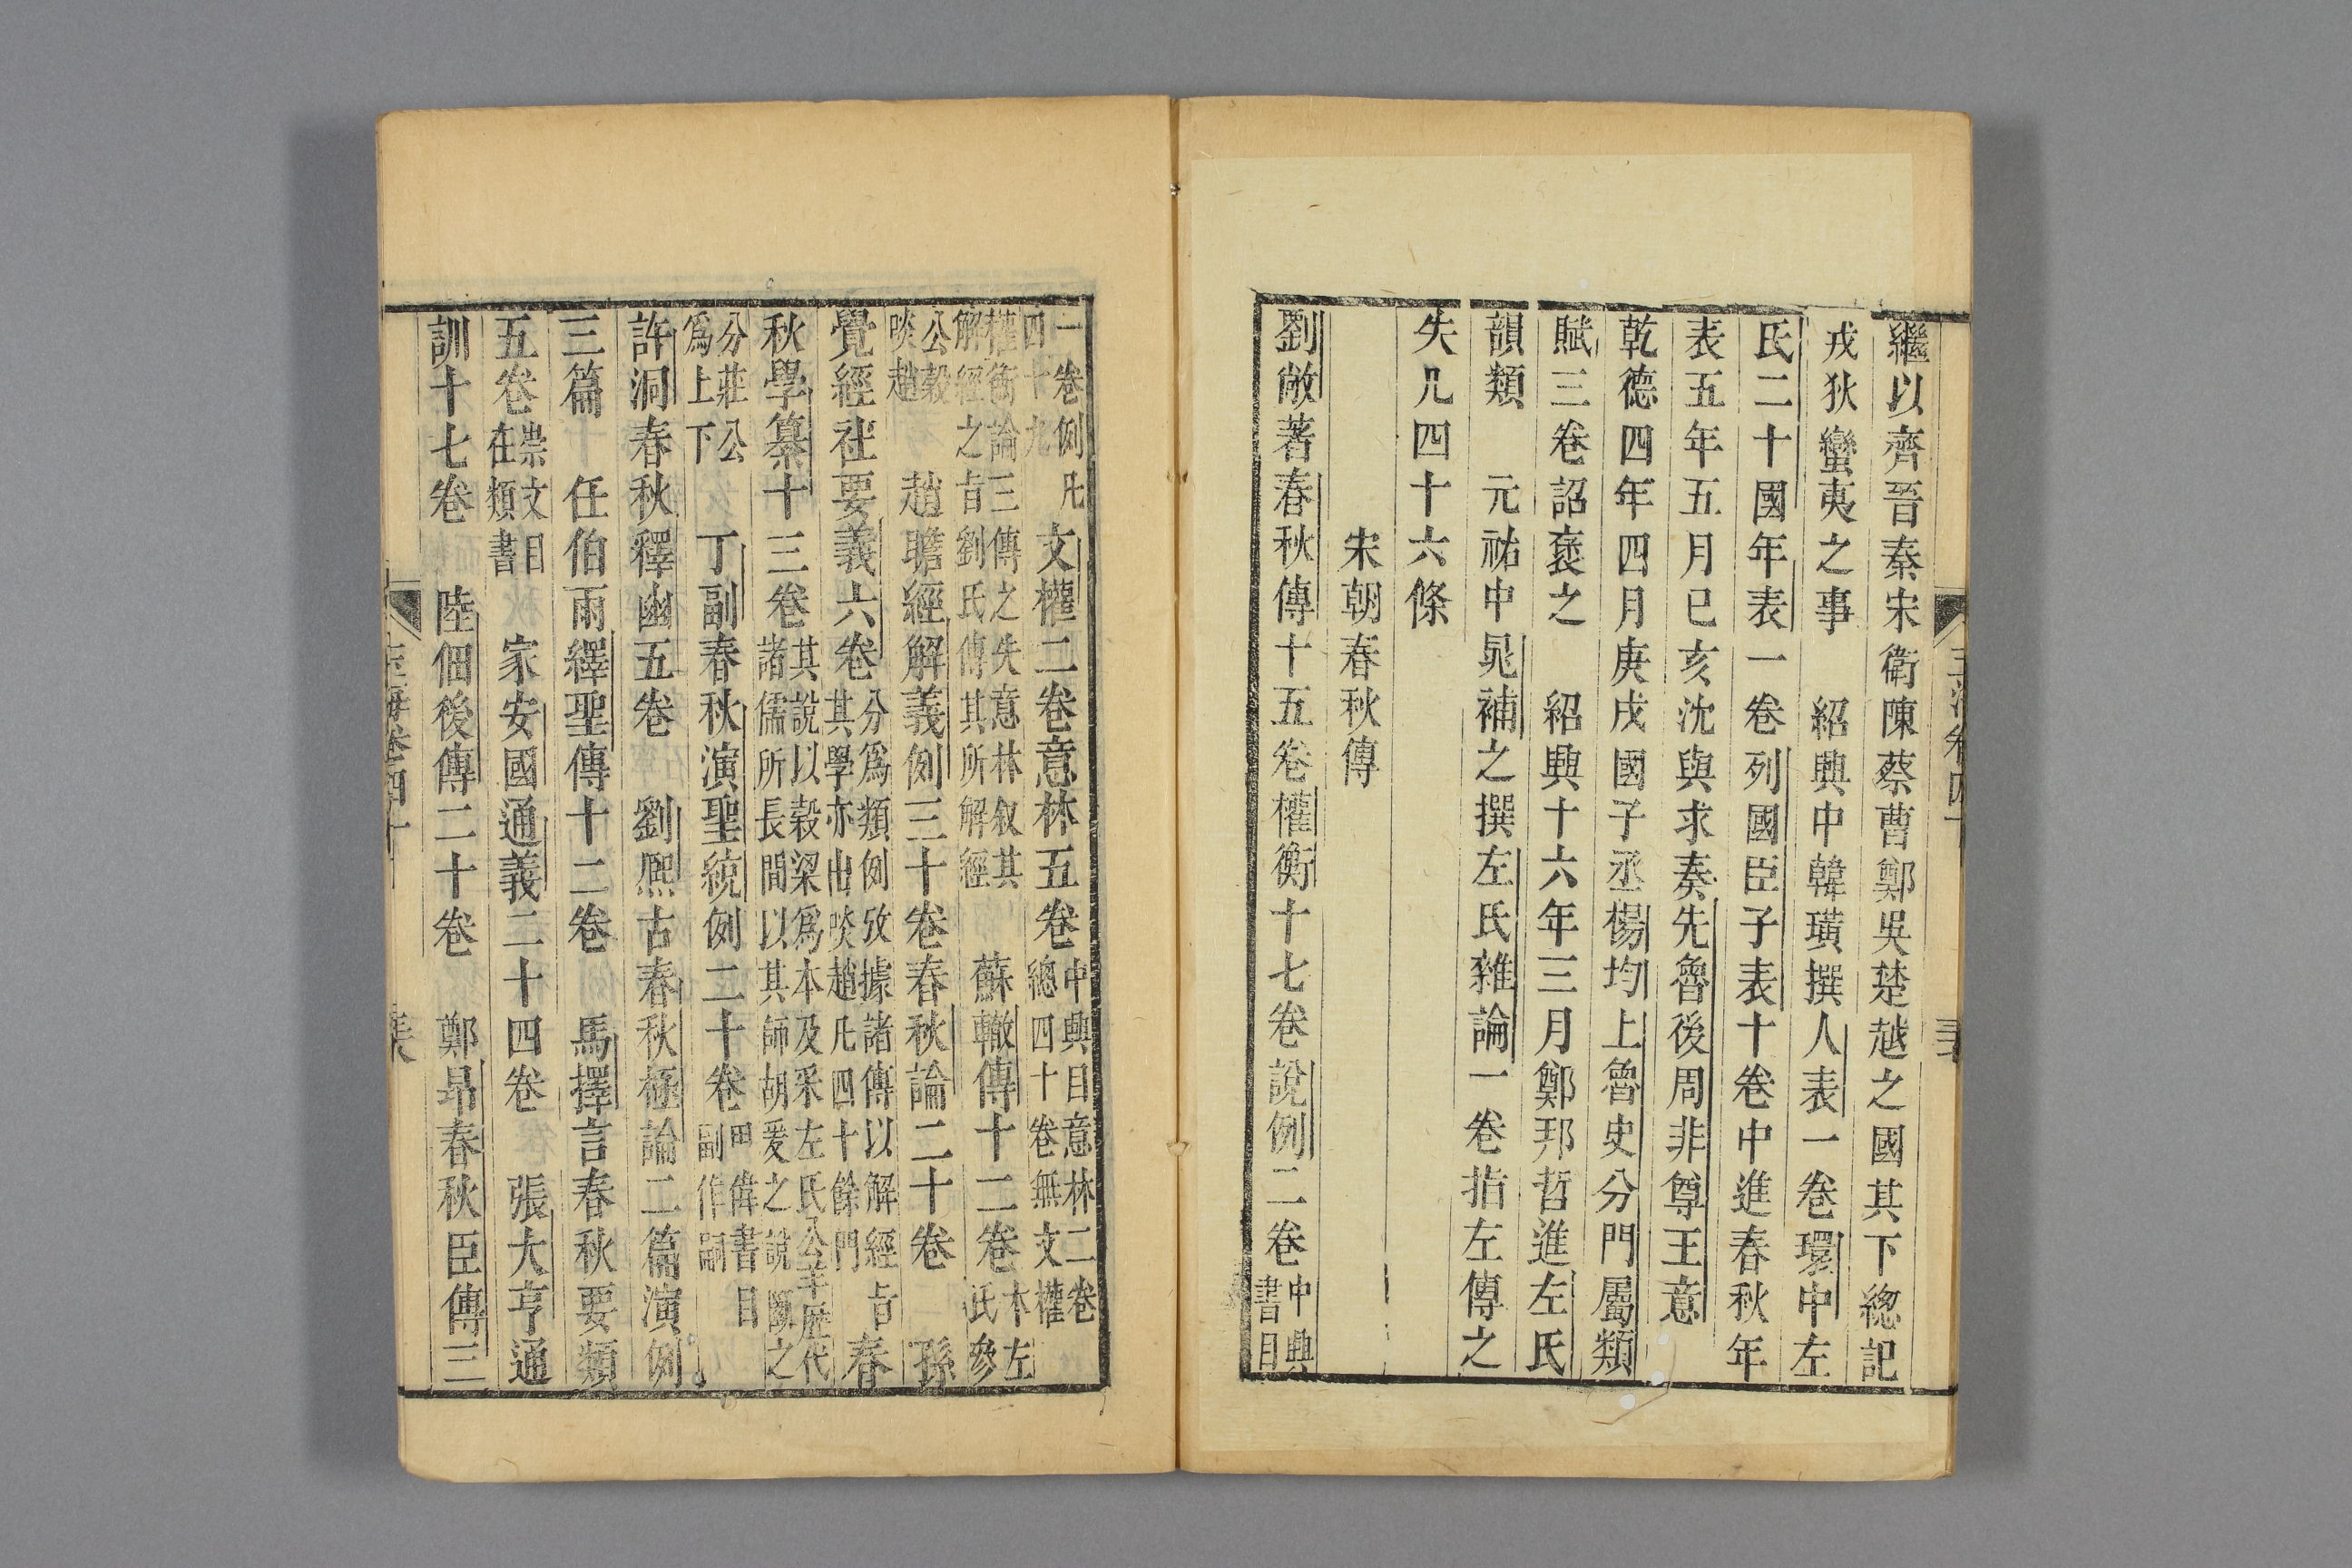 繼以齊晉秦宋衛陳蔡曹鄭吳楚越之國其下總記
戎狄蠻夷之事　紹興中韓璜撰人表一卷環中左
氏二十國年表一卷列國臣子表十卷中進春秋年
表五年五月已亥沈與求奏先魯後周非尊王意
乾德四年四月庚戌國子丞楊均上魯史分門屬類
賦三卷詔褒之　紹興十六年三月鄭邦哲進左氏
韻類　元祐中晁補之撰左氏雜論一卷指左傳之
失凡四十六條
宋朝春秋傳
劉敞著春秋傳十五卷權衡十七卷說例二卷中興
書目
一卷例凡
四十九
文權二卷意林五卷
中興目意林二卷
總四十卷無文權
權衡論三傳之失意林叙其
解經之旨劉氏傳其所解經
蘇轍傳十二卷
本左
氏參
公穀
啖趙
趙瞻經解義例三十卷春秋論二十卷　孫
覺經社要義六卷
分爲類例攷據諸傳以解經旨
其學亦出啖趙凡四十餘門
春
秋學纂十三卷
其說以穀梁爲本及采左氏公羊歷代
諸儒所長間以其師胡爰之說斷之
分莊公
爲上下
丁副春秋演聖統例二十卷
田偉書目
副作嗣
許洞春秋釋幽五卷　劉熙古春秋極論二篇演例
三篇　任伯雨繹聖傳十二卷　馬擇言春秋要類
五卷
崇文目
在類書
家安國通義二十四卷　張大亨通
訓十七卷　陸佃後傳二十卷　鄭昂春秋臣傳三